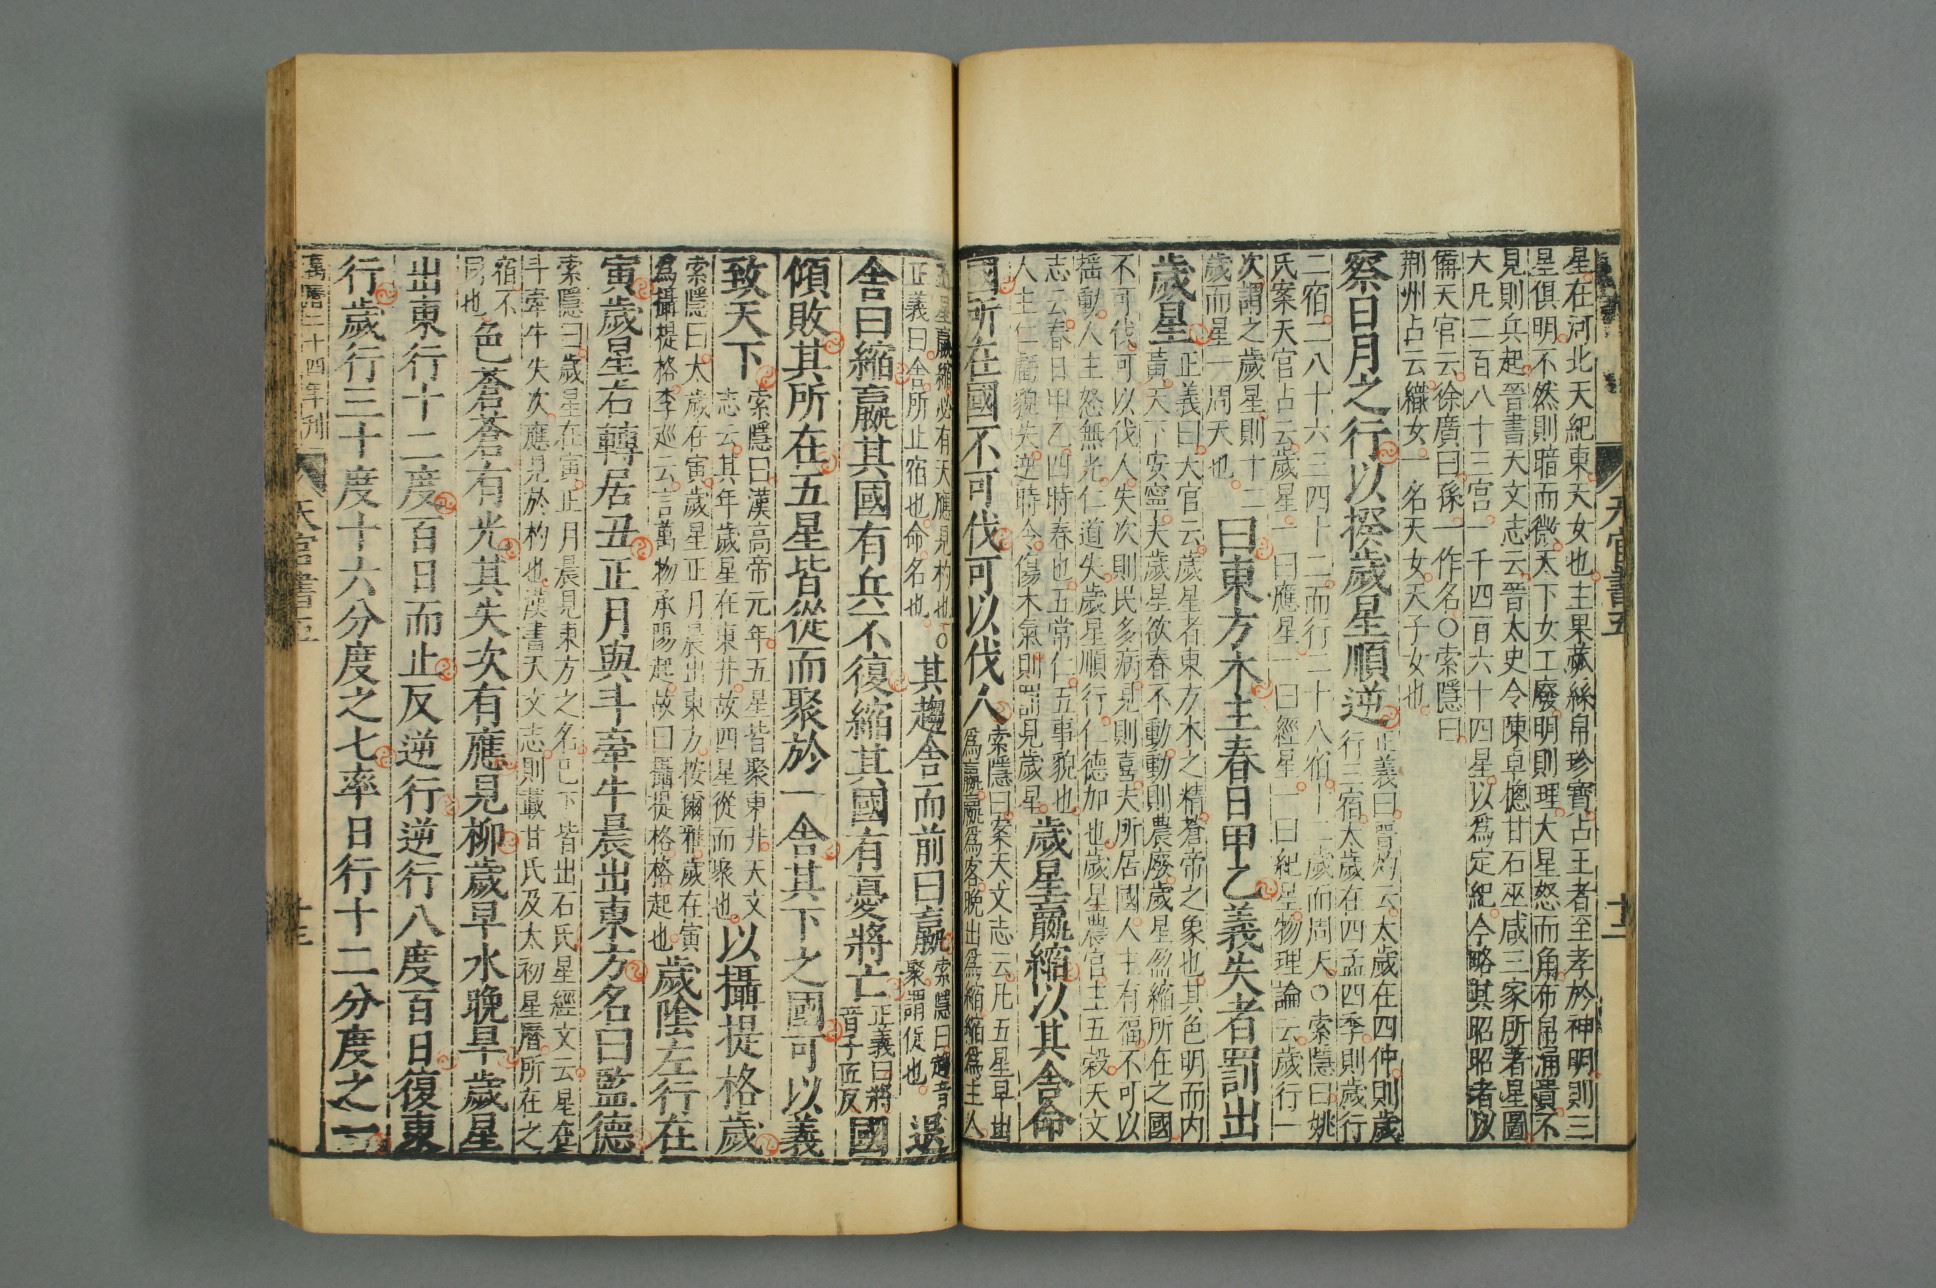 星在河北天紀東天女也主果蓏絲帛珍寶占王者至孝於神明則三
星俱明不然則暗而微天下女工廢明則理大星怒而角布帛涌貴不
見則兵起晉書天文志云晉太史令陳卓揔甘石巫咸三家所著星圖
大凡二百八十三宫一千四百六十四星以爲定紀今略其昭昭者以
備天官云徐廣曰孫一作名〇索隱曰
荆州占云織女一名天女天子女也
察日月之行以揆歲星順逆
正義曰晉灼云太歲在四仲則歲
行三宿太歲在四孟四季則歲行
二宿二八十六三四十二而行二十八宿十二歲而周天〇索隱曰姚
氏案天官占云歲星一曰應星一曰經星一曰紀星物理論云歲行一
次謂之歲星則十二
歲而星一周天也
曰東方木主春日甲乙義失者罰出
歲星
正義曰天官云歲星者東方木之精蒼帝之象也其色明而内
黃天下安寧夫歲星欲春不動動則農廢歲星盈縮所在之國
不可伐可以伐人失次則民多病見則喜夫所居國人主有福不可以
摇動人主怒無光仁道失歲星順行仁德加也歲星農官主五穀天文
志云春日甲乙四時春也五常仁五事貌也
人主仁虧貌失逆時令傷木氣則罰見歲星
歲星贏縮以其舍命
國所在國不可伐可以伐人
索隱曰案天文志云凡五星早出
爲贏贏爲客晚出爲縮縮爲主人
五星贏縮必有天應見杓也〇
正義曰舍所止宿也命名也
其趨舍而前曰贏
索隱曰趨音
聚謂促也
退
舍曰縮贏其國有兵不復縮其國有憂將亡
正義曰將
音子匠反
國
傾敗其所在五星皆從而聚於一舍其下之國可以義
致天下
索隱曰漢高帝元年五星皆聚東井天文
志云其年歲星在東井故四星從而聚也
以攝提格歲
索隱曰太歲在寅歲星正月晨出東方按爾雅歲在寅
爲攝提格李巡云言萬物承陽起故曰攝提格格起也
歲陰左行在
寅歲星右轉居丑正月與斗牽牛晨出東方名曰監德
索隱曰歲星在寅正月晨見東方之名已下皆出石氏星經文云星在
斗牽牛失次應見於杓也漢書天文志則載甘氏及太初星曆所在之
宿不
同也
色蒼蒼有光其失次有應見柳歲早水晚旱歲星
出東行十二度百日而止反逆行逆行八度百日復東
行歲行三十度十六分度之七率日行十二分度之一
萬曆二十四年刊
天官書五
十三
天官書五
十二